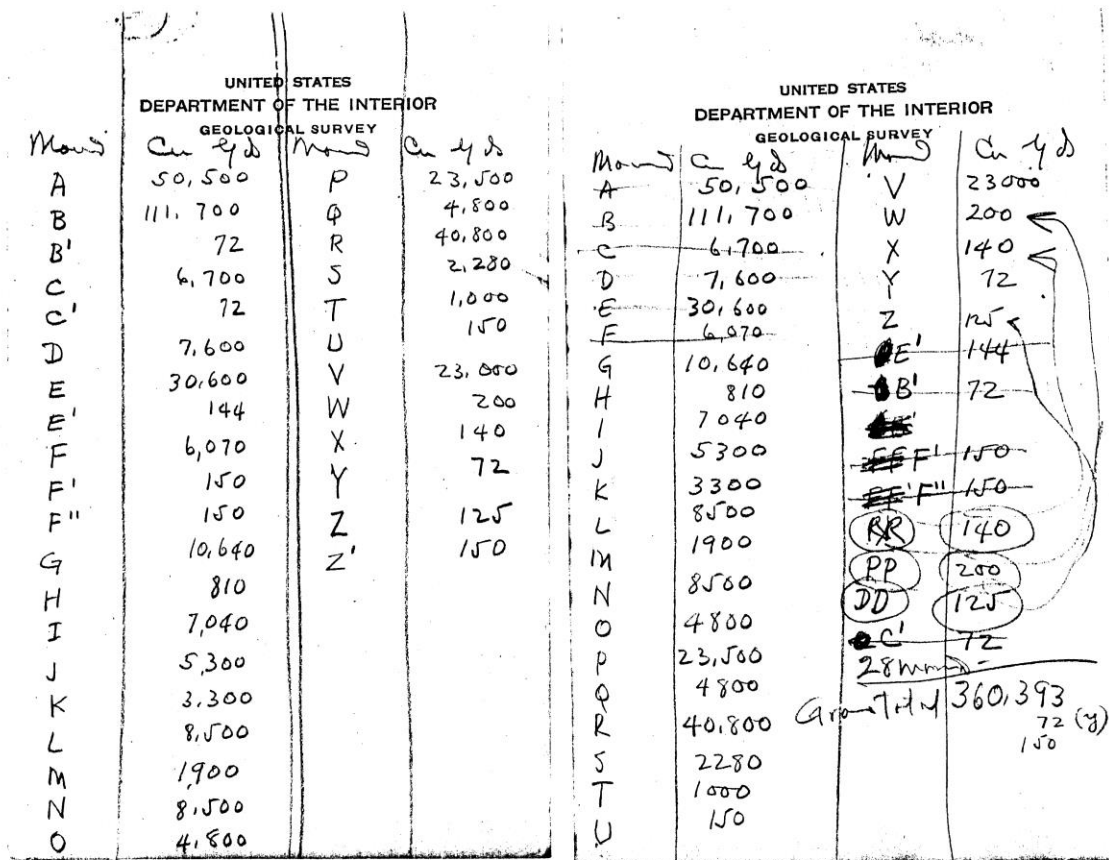 UNITED STATES
DEPARTMENT OF THE INTERIOR
GEOLOGICAL SURVEY
Mound Cu Yds Mound Cu Yds
A 50,500 P 23,500
B 111,700 Q 4,800
B' 72 R 40,800
C 6,700 S 2,280
C' 72 T 1,000
D 7,600 U 150
E 30,600 V 23,000
E' 144 W 200
F 6,070 X 140
F' 150 Y 72
F" 150 Z 125
G 10,640 Z' 150
H 810
I 7,040
J 5,300
K 3,300
L 8,500
M 1900
N 8,500
O 4,800
UNITED STATES
DEPARTMENT OF THE INTERIOR
GEOLOGICAL SURVEY
Mound Cu Yds Mound Cu Yds
A 50,500 V 23000
B 111,700 W 200
C 6,700 X 140
D 7,600 Y 72
E 30,600 Z 125
F 6,070 E' 144
G 10,640 B' 72
H 810
I 7040 F' 150
J 5300 F" 150
K 3300 RR 140
L 8500 PP 200
M 1900 DD 125
N 8500 C' 72
O 4800 28 mounds
P 23,500 Grand Total 360,393
Q 4800 72 (y)
R 40,800 150
S 2280
T 1000
U 150